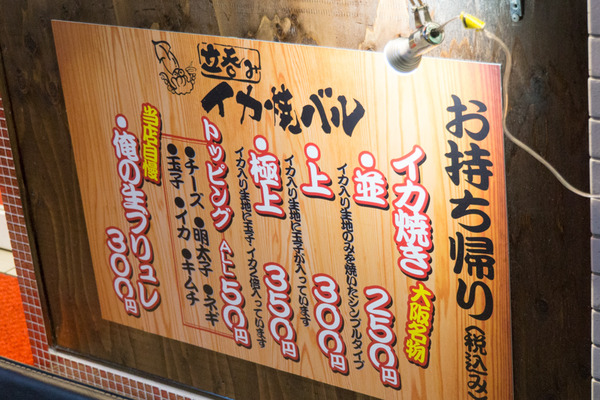 立呑み
イカ焼バル
お持ち帰り(税込み)
イカ焼き 大阪名物
・並 250円
イカ入り生地のみを焼いたシンプルタイプ
・上 300円
イカ入り生地に玉子が入っています
・極上 350円
イカ入り生地に玉子、イカ2倍入っています
トッピング ALL50円
●チーズ ●明太子 ●ネギ
●玉子 ●イカ ●キムチ
当店自慢
・俺の生ブリュレ 300円